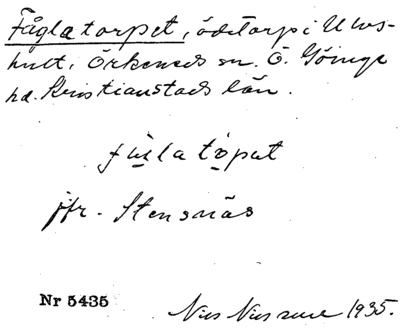 Fåglatorpet, ödetorp i Ulvs-
hult, Örkeneds sn. Ö. Göinge
hd. Kristianstads län.
fúlatòpat
jfr. Stensnäs
Nr 5435
Nils Nilsson 1935.